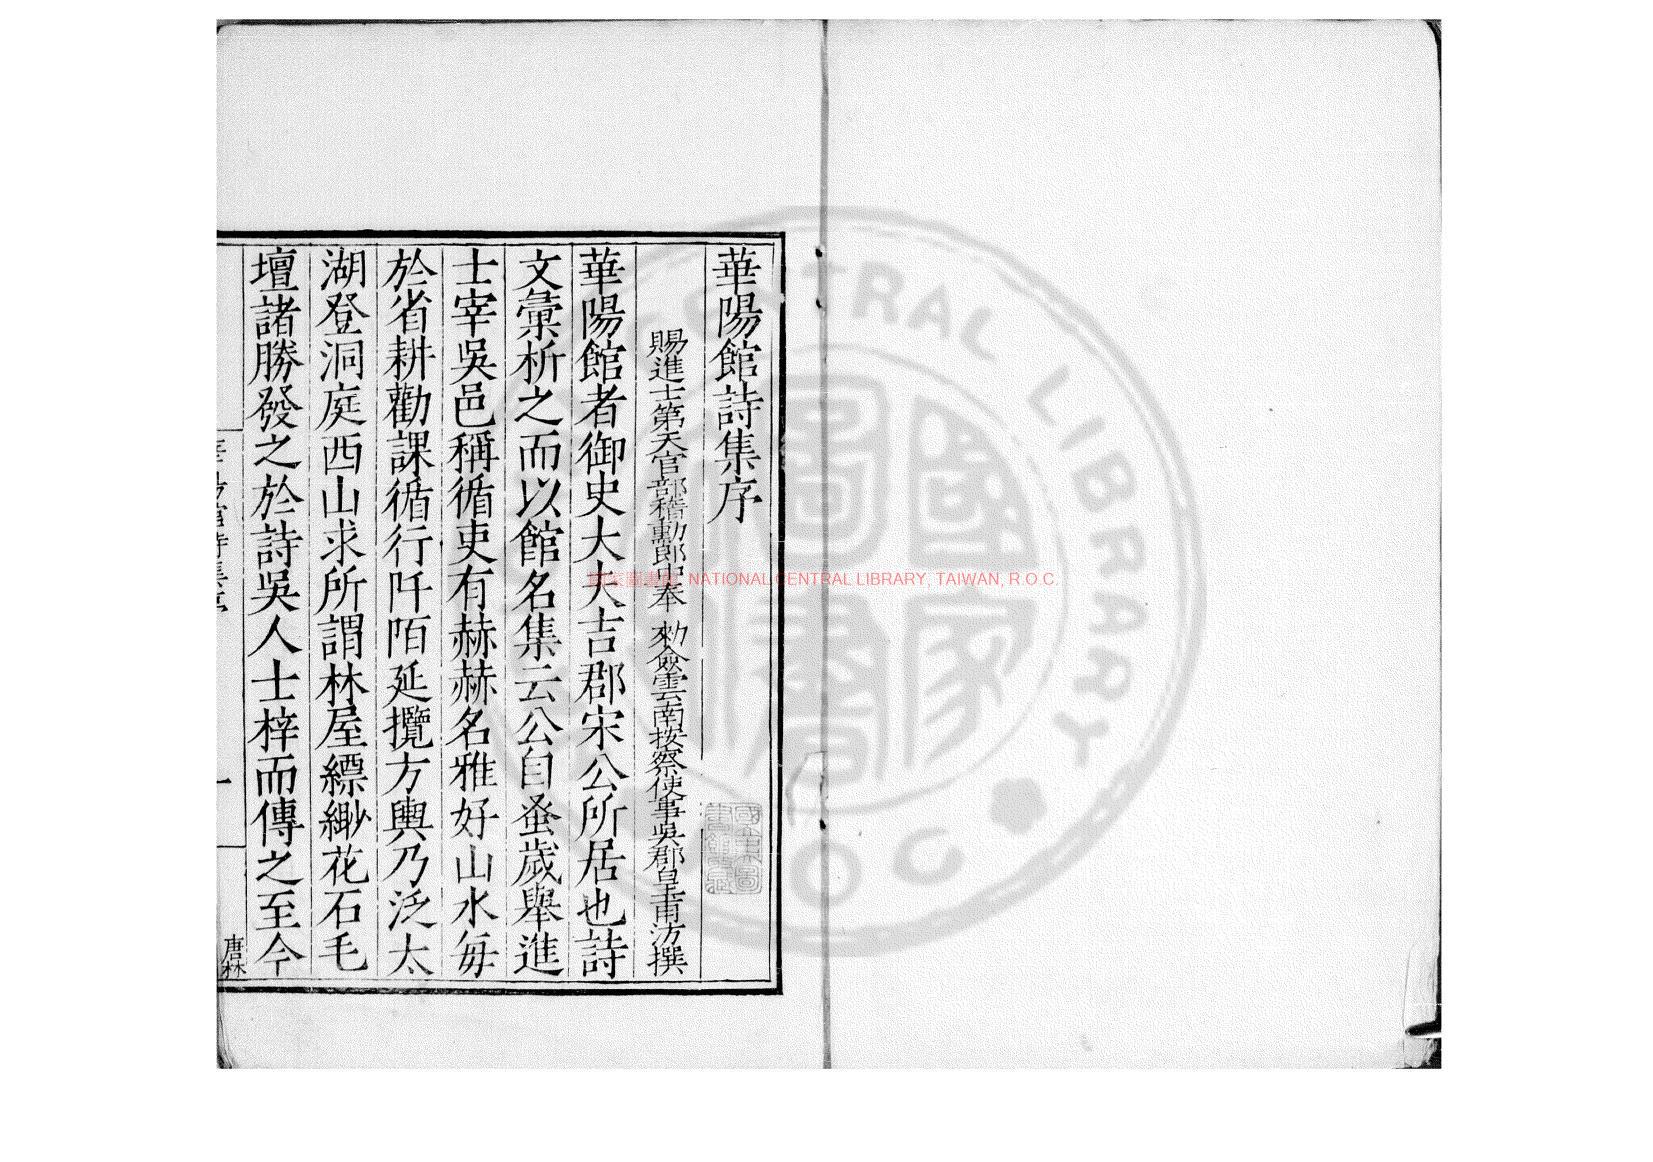 華陽館詩集序
賜進士第天官部稽勳郎中奉 勑僉雲南按察使事吳郡皇甫汸撰
華陽館者御史大夫吉郡宋公所居也詩
文彙析之而以館名集云公自蚤歲舉進
士宰吳邑稱循吏有赫赫名雅好山水每
於省耕勸課循行阡陌延攬方輿乃泛太
湖登洞庭西山求所謂林屋縹緲花石毛
壇諸勝發之於詩吳人士梓而傳之至今
唐林
國家圖書館 NATIONAL CENTRAL LIBRARY, TAIWAN, R.O.C.